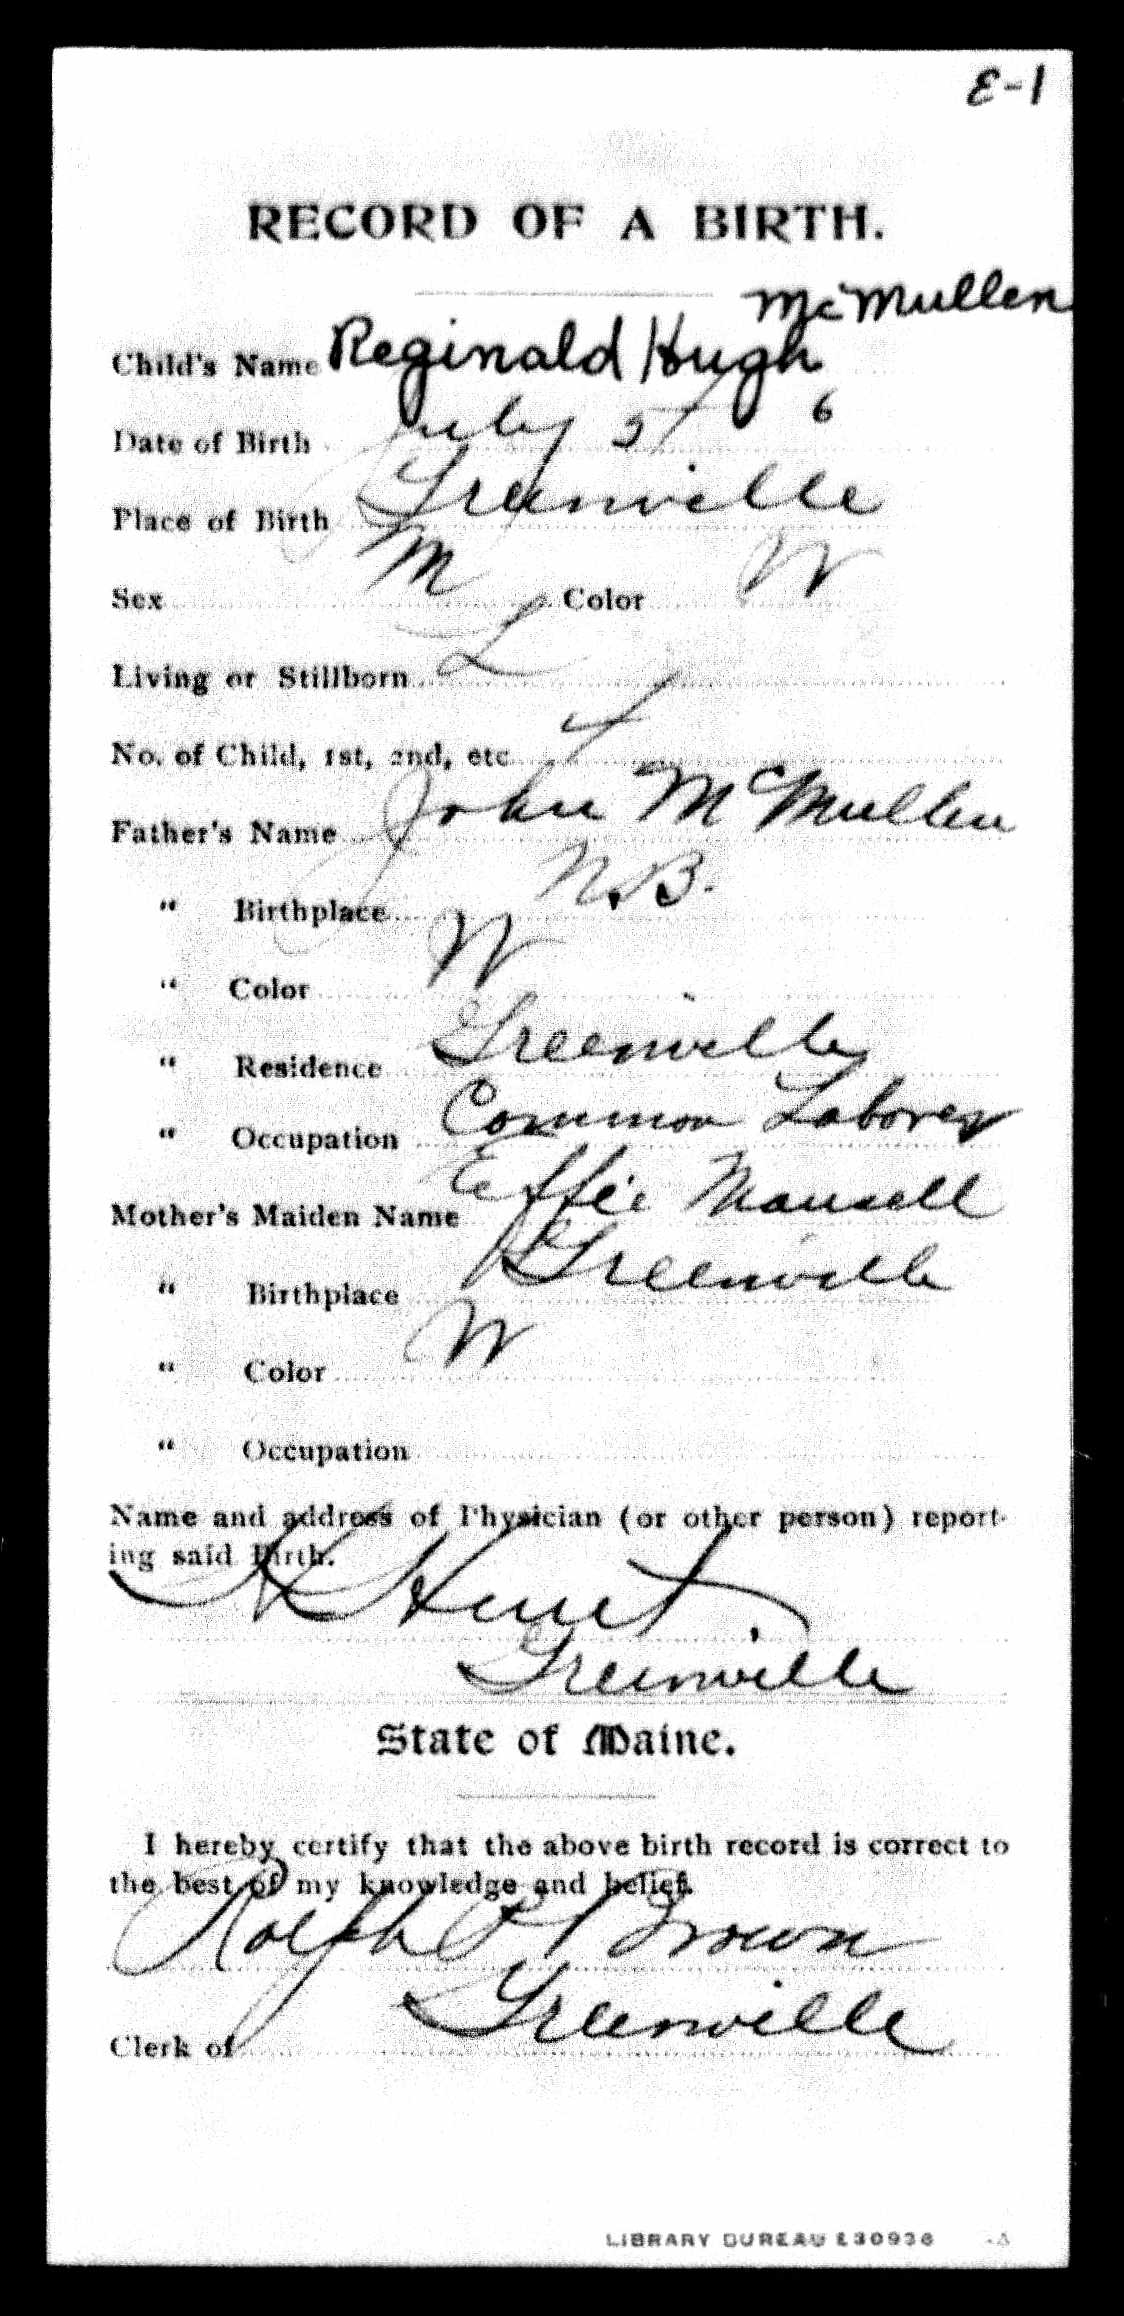 E-1
RECORD OF A BIRTH.
McMullen
Child's Name Reginald Hugh
Date of Birth July 6
Place of Birth Greenville
Sex M Color W
Living or Stillborn L
No. of Child, 1st, 2nd, etc
Father's Name John McMullen
" Birthplace N.B.
" Color W
" Residence Greenville
" Occupation Common Laborer
Mother's Maiden Name Effie Mansell
" Birthplace Greenville
" Color W
" Occupation
Name and address of Physician (or other person) report-
ing said Birth.
Hunt
Greenville
State of Maine.
I hereby certify that the above birth record is correct to
the best of my knowledge and belief.
Ralph Brown
Clerk of Greenville
LIBRARY BUREAU E30936